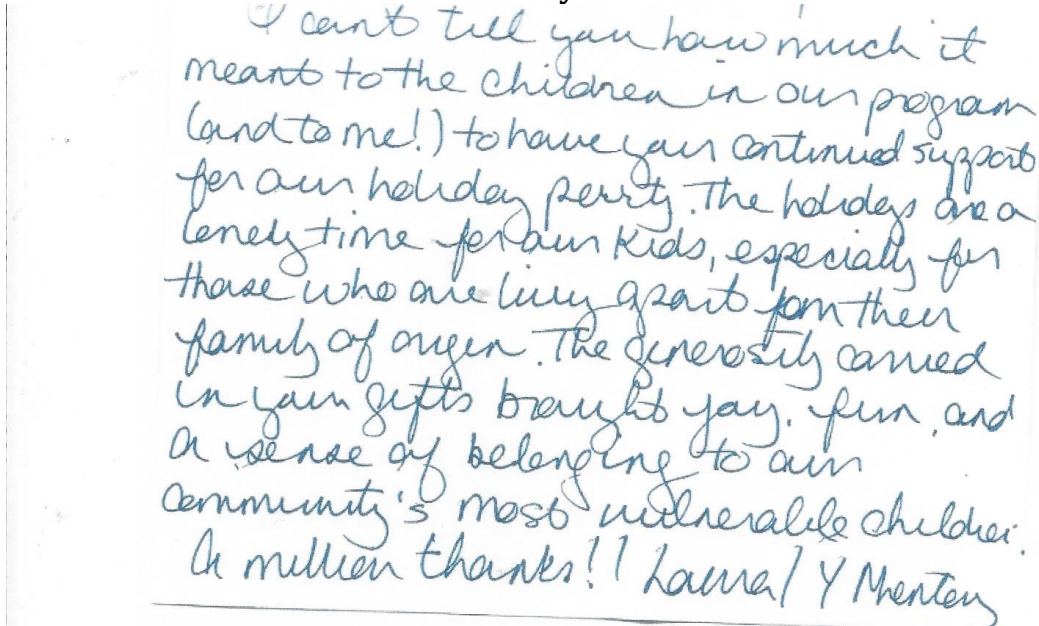 I can't tell you how much it
meant to the children in our program
(and to me!) to have your continued support
for our holiday party. The holidays are a
lonely time for our kids, especially for
those who are living apart from their
family of origin. The generosity carried
in your gifts brought joy, fun, and
a sense of belonging to our
community's most vulnerable children.
A million thanks!! Laura / Y Mentors